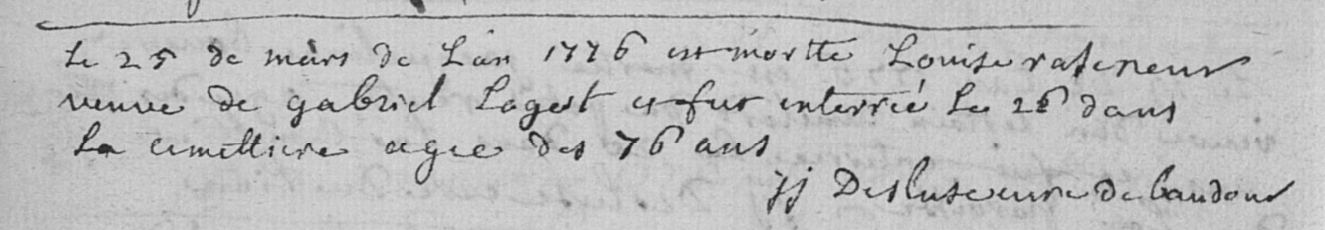 Le 25 de mars de Lan 1776 est mortte Louise rateneur
veuve de gabriel Lagest et fut enterrié Le 26 dans
La cimettiere agee des 76 ans
jj Desluse cure de baudour